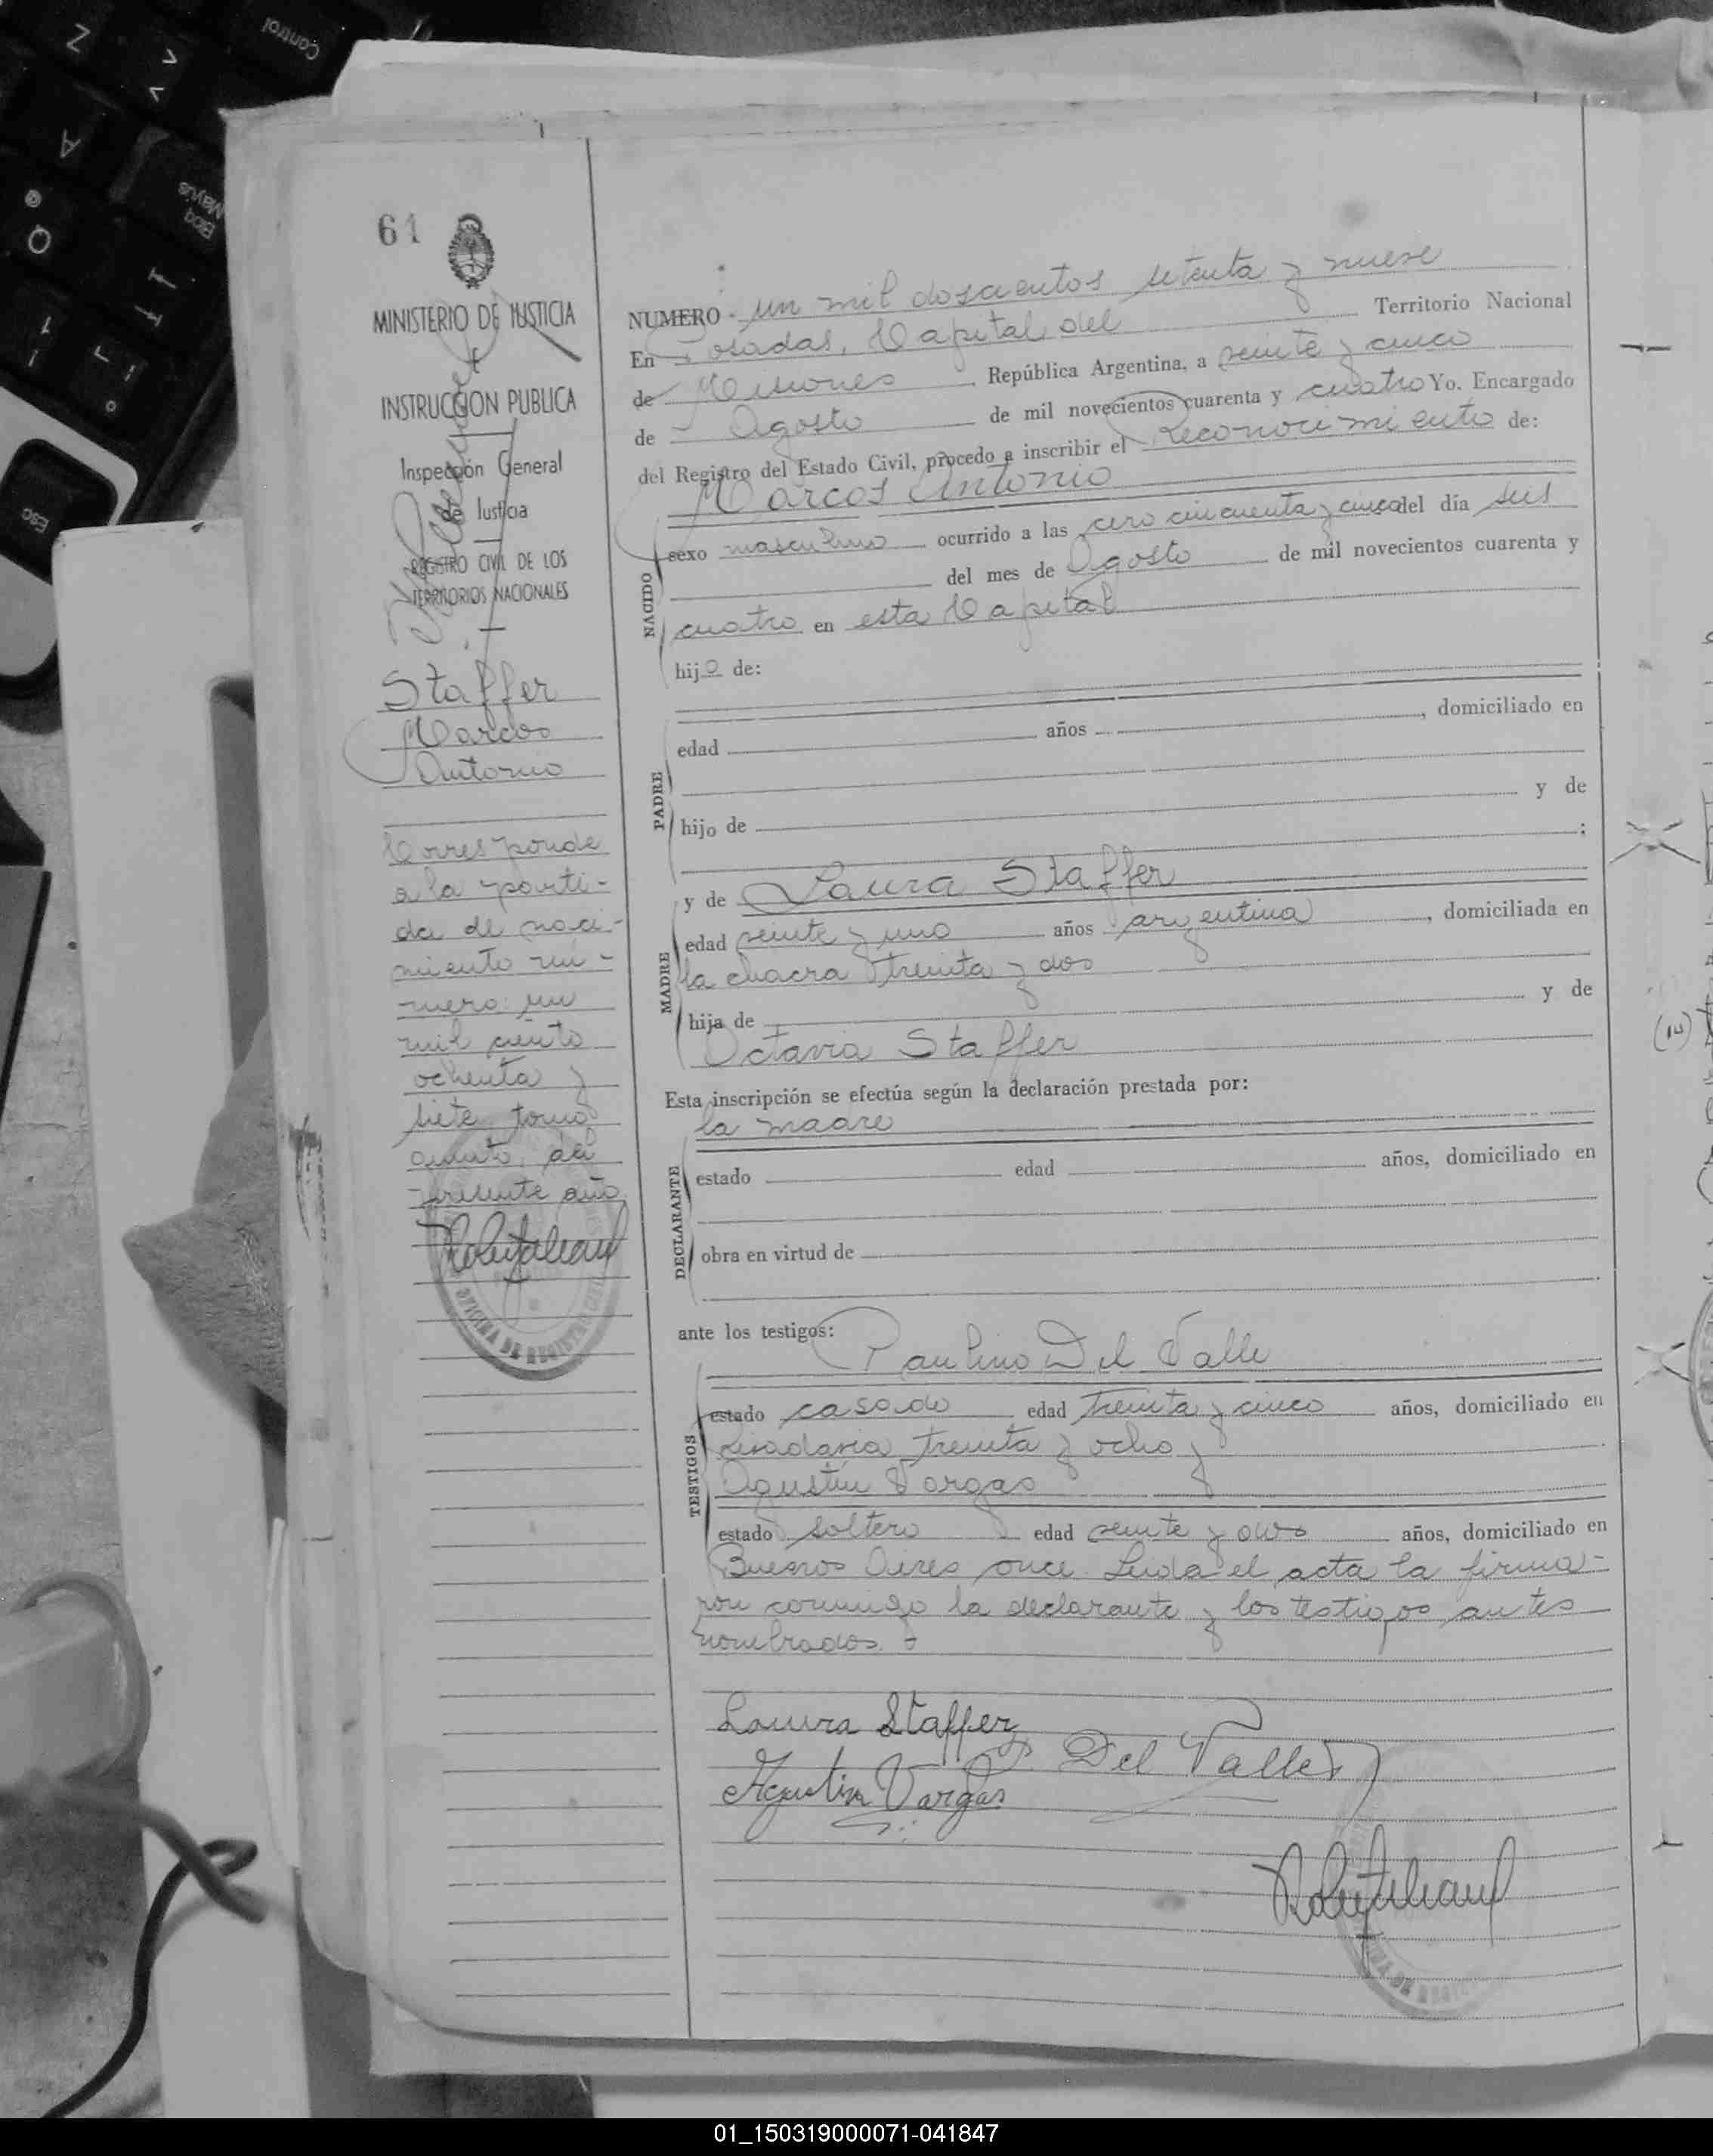 61
MINISTERIO DE JUSTICIA
E
INSTRUCCION PUBLICA
Inspección General
de Justicia
REGISTRO CIVIL DE LOS
TERRITORIOS NACIONALES
Staffer
Marcos
Antonio
Corresponde
a la parti-
da de naci-
miento nú-
mero: un
mil ciento
ochenta y
siete, tomo
quinto, del
presente año
NUMERO - un mil doscientos setenta y nueve
En Posadas, Capital del Territorio Nacional
de Misiones República Argentina, a veinte y cinco
de Agosto de mil novecientos cuarenta y cuatro Yo. Encargado
del Registro del Estado Civil, procedo a inscribir el Reconocimiento de:
Marcos Antonio
NACIDO
sexo masculino ocurrido a las cero cincuenta y cinco del día seis
del mes de Agosto de mil novecientos cuarenta y
cuatro en esta Capital
hijo de:
PADRE
edad años , domiciliado en
hijo de y de
;
MADRE
y de Laura Staffer
edad veinte y uno años argentina , domiciliada en
la chacra treinta y dos
hija de y de
Octavia Staffer
Esta inscripción se efectúa según la declaración prestada por:
la madre
DECLARANTE
estado edad años, domiciliado en
obra en virtud de
ante los testigos:
Paulino Del Valle
TESTIGOS
estado casado edad treinta y cinco años, domiciliado en
Rivadavia treinta y ocho y
Agustín Vargas
estado soltero edad veinte y dos años, domiciliado en
Buenos Aires once. Leida el acta la firma-
ron conmigo la declarante y los testigos antes
nombrados.
Laura Staffer
P. Del Valle
Agustin Vargas
OFICINA DE REGISTRO CIVIL
01_150319000071-041847